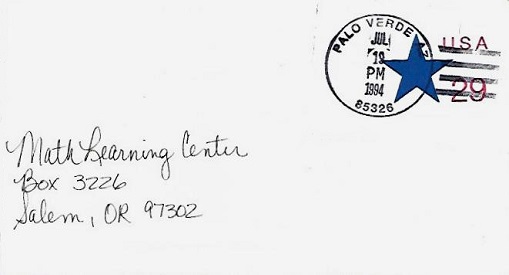 PALO VERDE AZ
JUL
19
PM
1994
85326
USA
29
Math Learning Center
Box 3226
Salem, OR 97302